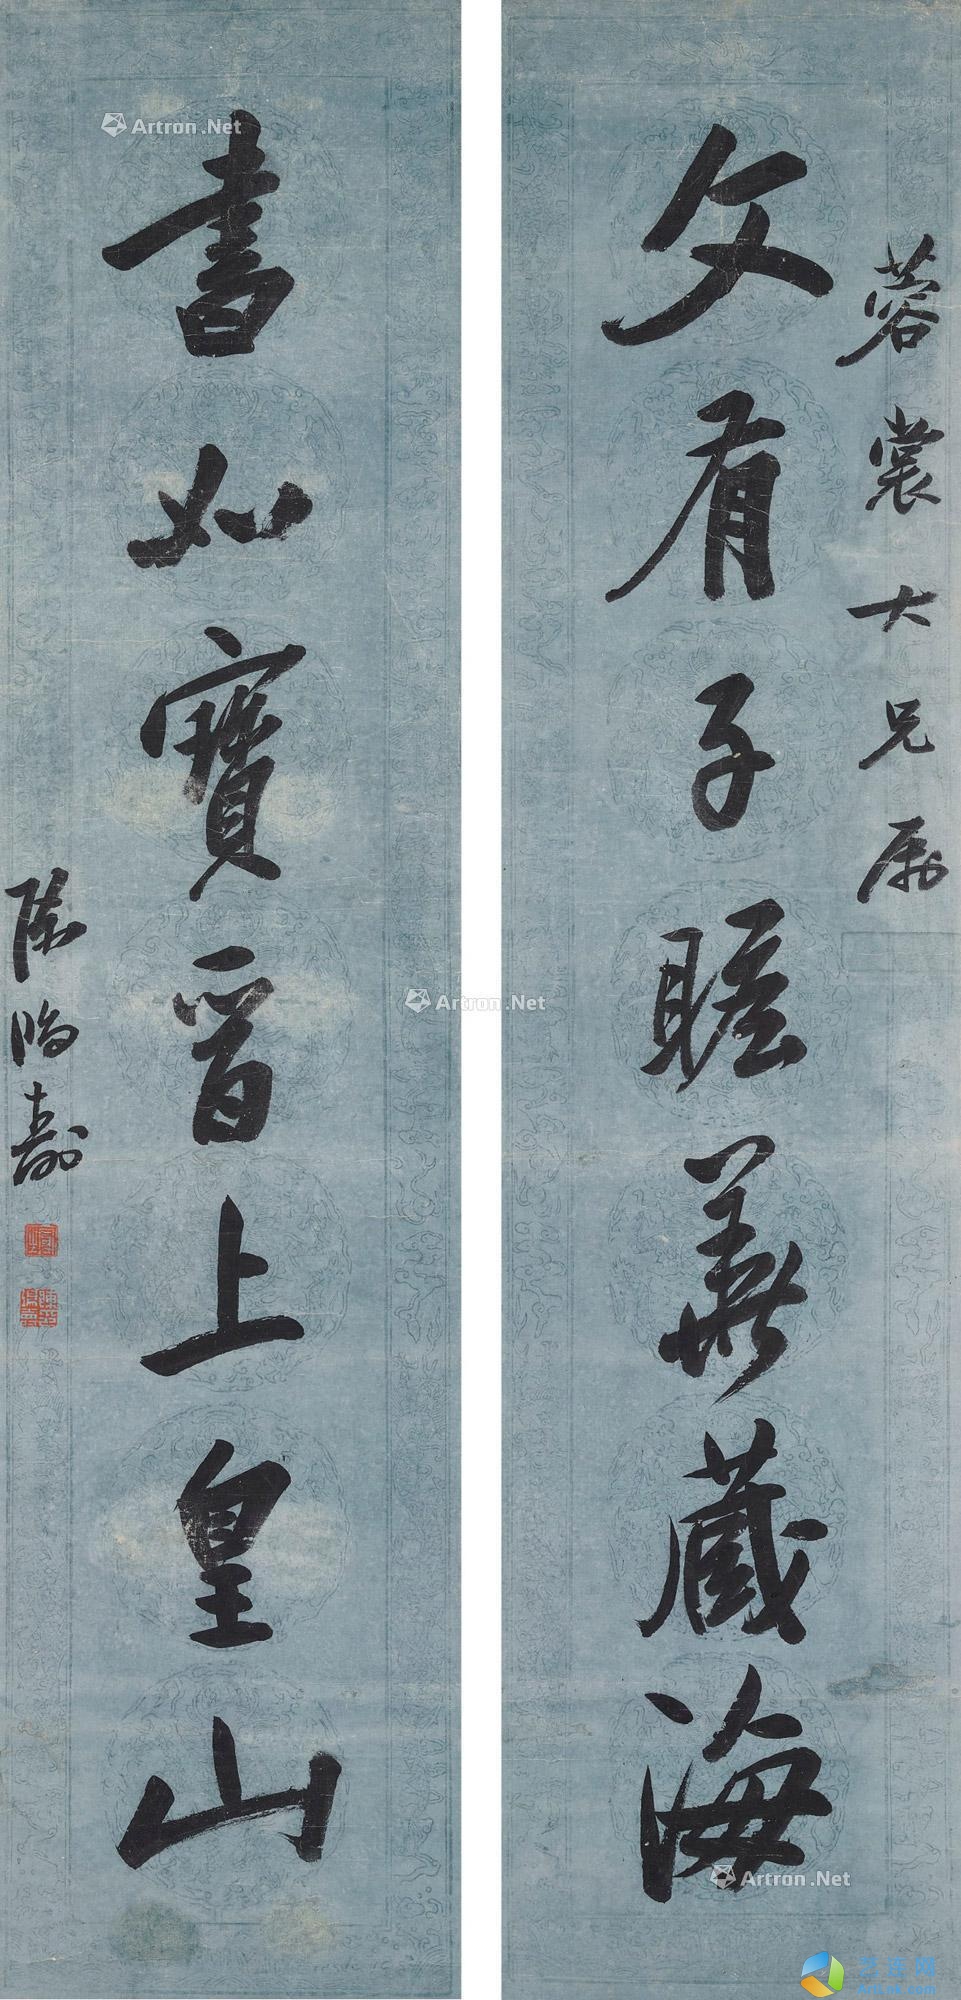 蓉裳大兄属
文有子瞻無藏海
書如寶晉上皇山
陳鴻壽
Artron.Net
Artron.Net
Artron.Net